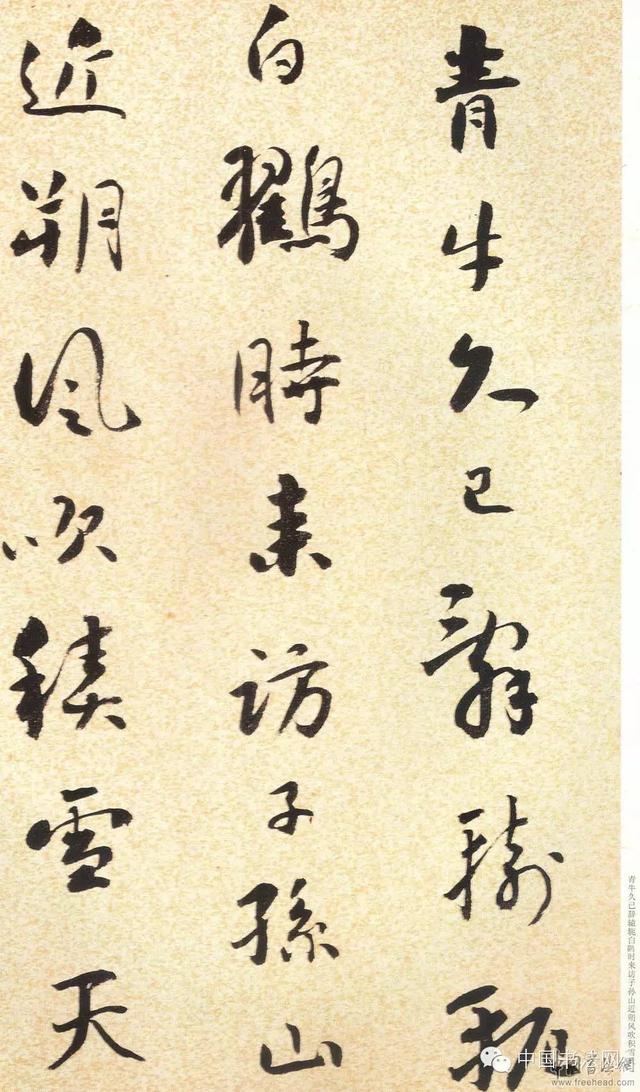 青牛久已辭轅軛
白鶴時来訪子孫山
近朔風吹積雪天
青牛久已辞辕轭白鹤时来访子孙山近朔风吹积雪
中国书法网
www.freehead.com